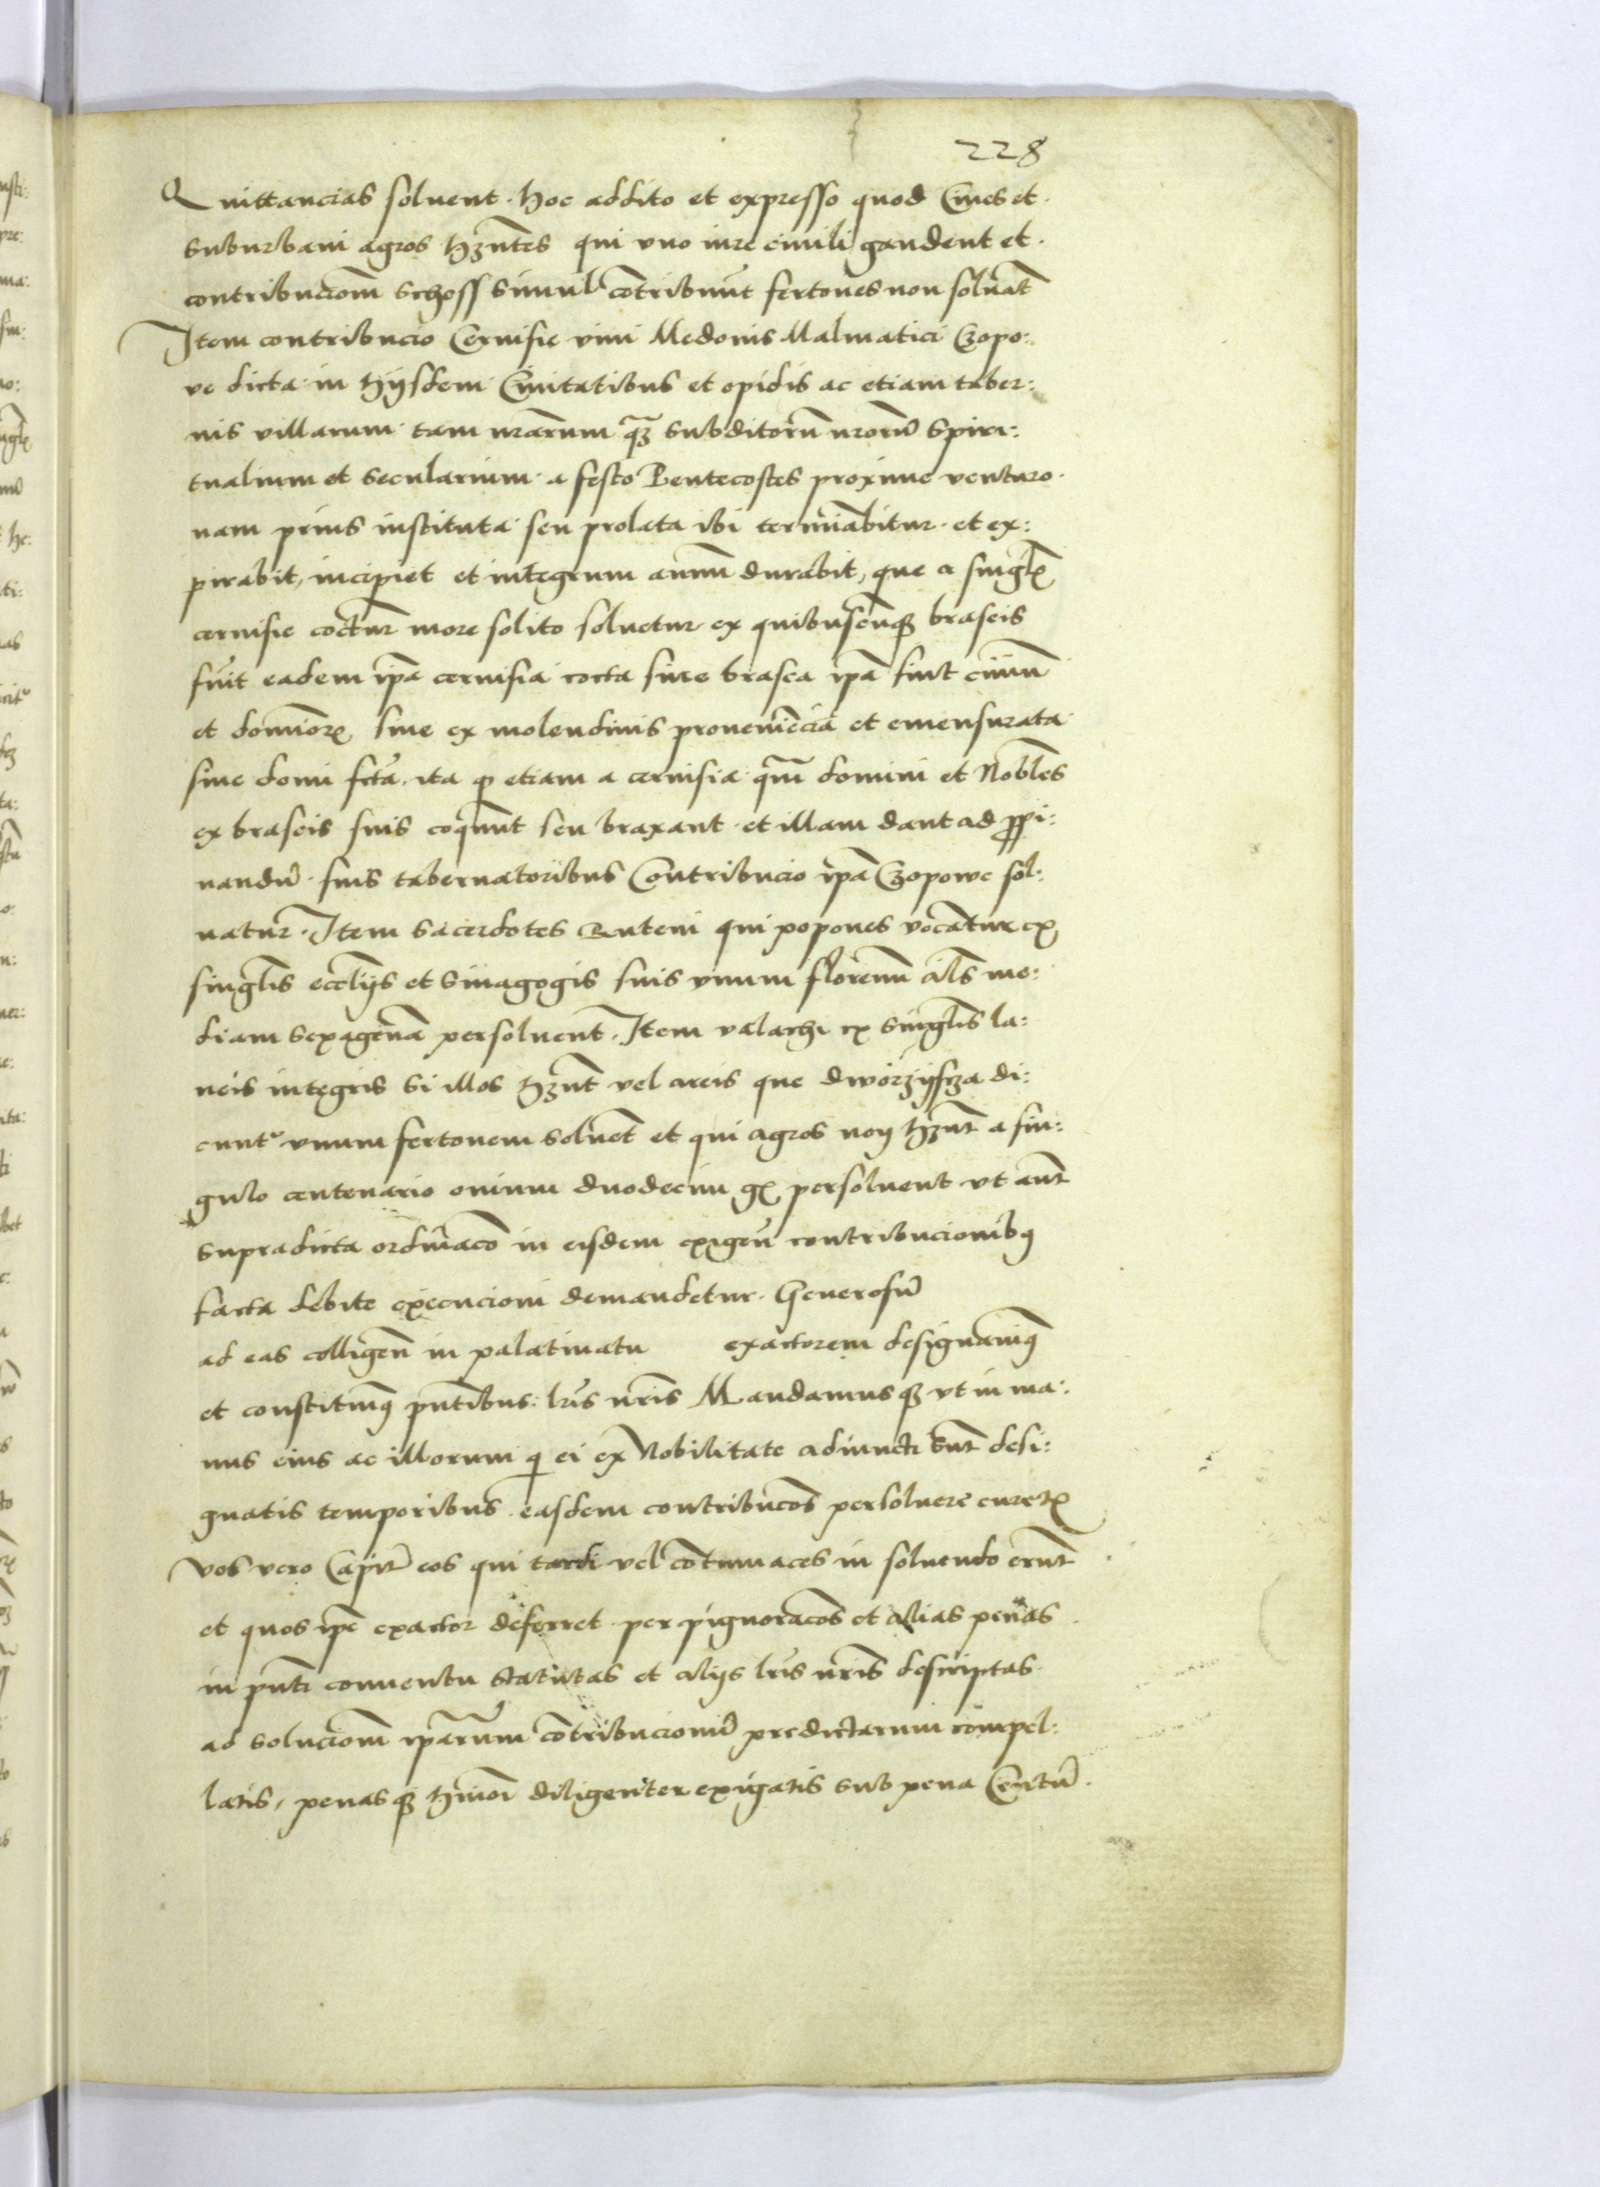 228
Quittancias soluent. hoc addito et expresso quod Ciues et.
suburbani agros hūtes qui vno iure ciuili gaudent et.
contribucioem schoss simul cōtribuūt fertones non soluāt
Item contribucio Ceruisie vini Medonis Malmatici Czopo:
ve dicta in hijsdem Ciuitatibus et opidis ac etiam taber:
nis villarum tam nr̄arum q̄ȝ subditorū nrorū spiri:
tualium et secularium a festo Pentecostes proxime venturo.
nam prius instituta seu prolata ibi termīabitur. et ex:
pirabit, incipiet et integrum annū durabit, que a singl̄
ceruisie coctur̄ more solito soluetur ex quibuscūqȝ braseis
fūit eadem ip̄a ceruisia cocta siue brasea ip̄a sint ciuiū
et dominor̄ siue ex molendinis proueniēcia et emensurata
siue domi fct̄a. ita qȝ etiam a ceruisia quā domini et Nobl̄es
ex braseis suis coquūt seu braxant. et illam dant ad ꝓpi:
nandū. suis tabernatoribus Contribucio ip̄a Czopowe sol:
uatur̄. Item sacerdotes Ruteni qui popones vocātur ex
singl̄is eccl̄ijs et sinagogis suis vnum florenū al̄s me:
diam sexagenā persoluent. Item valachi ex singl̄is la:
neis integris si illos hn̄t vel areis que dworzijscza di:
cunt̄ vnum fertonem soluēt et qui agros non hn̄t a sin:
gulo centenario ouium duodecim gr̄ persoluent vt aūt
supradicta ordinaco in eisdem exigen̄ contribucionibȝ
facta debite execucioni demandetur. Generosū
ad eas colligen̄ in palatinatu exactorem designamȝ
et constituimȝ pn̄tibus lr̄is nr̄is Mandamusqȝ vt in ma:
nus eius ac illorum qͥ ei ex Nobilitate adiuncti sūt desi:
gnatis temporibus easdem contribucōs persoluere curetȝ
vos vero Capit̄ eos qui tardi vel cōtumaces in soluendo erūt
et quos ip̄e exactor deferret per pignoracōs et alias penas
in pn̄ti conuentu statutas et alijs lr̄is nr̄is descriptas
ad solucioem ip̄arum cōtribucionū predictarum compel:
latis, penasqȝ hmōi diligenter exigatis sub pena Centū.